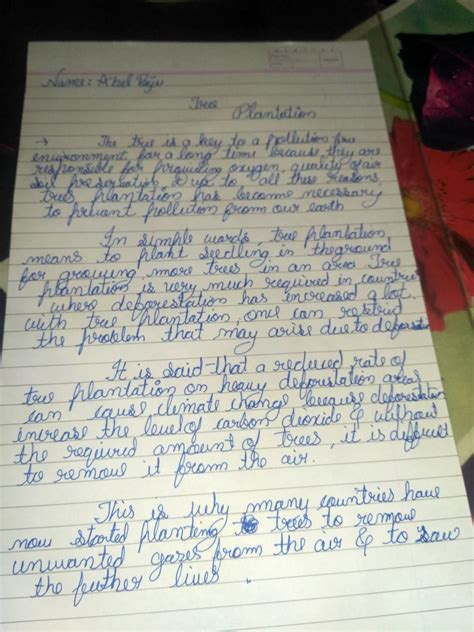 Name: Abel
Tree Plantation
→ The tree is a key to a pollution free
environment for a long time because they are
responsible for providing oxygen, quality of air
soil preservation, up to all these reasons,
tree plantation has become necessary
to prevent pollution from our earth
In simple words, tree plantation
means to plant seedling in the ground
for growing more trees in an area Tree
plantation is very much required in countries
where deforestation has increased a lot.
with tree plantation, one can restrid
the problem that may arise due to deforest
It is said that a reduced rate of
tree plantation on heavy deforestation areas
can cause climate change because deforestation
increase the level of carbon dioxide & without
the required amount of trees, it is difficult
to remove it from the air.
This is why many countries have
now started planting trees to remove
unwanted gases from the air & to save
the further lives.